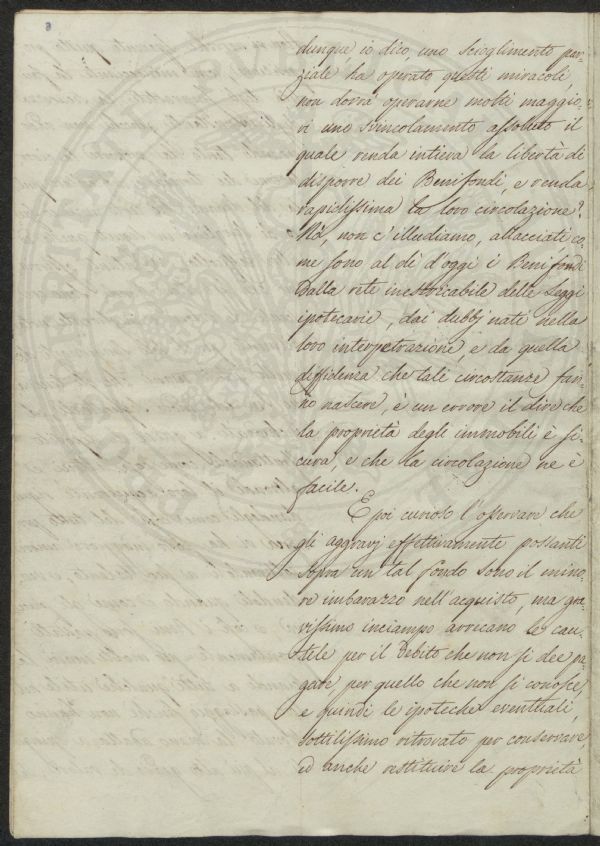 dunque io dico, uno scioglimento par=
ziale ha operato questi miracoli,
non dovrà operarne molti maggio=
ri uno svincolamento assoluto il
quale renda intiera la libertà di
disporre dei Benifondi, e renda
rapidissima la loro circolazione?
No, non c'illudiamo, allacciati co=
me sono al dì d'oggi i Benifondi
dalla rete inestricabile delle Leggi
ipotecarie, dai dubbj nati nella
loro interpetrazione e da quella
diffidenza che tali circostanze fan=
no nascere, è un errore il dire che
la proprietà degli immobili è si=
cura, e che la circolazione ne è
facile.
E poi curioso l'osservare che
gli aggravj effettivamente possanti
sopra un tal fondo sono il mino=
re imbarazzo nell'acquisto, ma gra=
vissimo inciampo arrecano le cau=
tele per il Debito che non si dee pa=
gare, per quello che non si conosce,
e quindi le ipoteche eventuali,
sottilissimo ritrovato per conservare,
ed anche restituire la proprietà